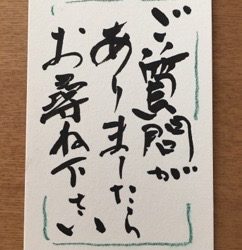 ご質問が
ありましたら
お尋ね下さい